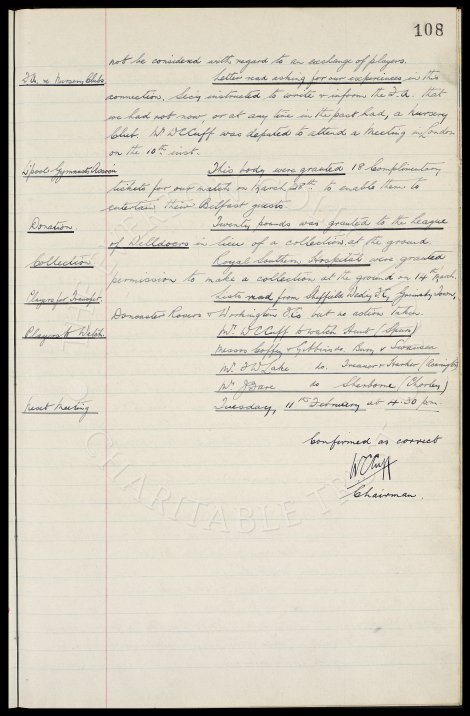 108
not be considered with regard to an exchange of players.
F.A. re Nursery Clubs. Letter read asking for our experiences in this
connection. Secy instructed to write & inform the F.A. that
we had not now, or at any time in the past had, a Nursery
Club. Mr W C Cuff was deputed to attend a Meeting in London
on the 10th inst.
L'pool Gymnasts Assocn This body were granted 18 Complimentary
tickets for our match on March 28th to enable them to
entertain their Belfast guests.
Donation Twenty pounds was granted to the League
of Welldoers in lieu of a collection at the ground
Collection Royal Southern Hospital were granted
permission to make a collection at the ground on 14th March.
Players for Transfer. Lists read from Sheffield Weday F.C, Grimsby Town,
Doncaster Rovers & Workington F.Cs but no action taken.
Players to Watch. Mr W C Cuff to watch Hunt (Spurs)
Messrs Coffey & Gibbins do. Bury v Swansea
Mr do. &
Mr J Fare do Sherborne (Chorley)
Next Meeting Tuesday, 11th February at 4.30 pm.
Confirmed as correct
W C Cuff
Chairman.
CHARITABLE